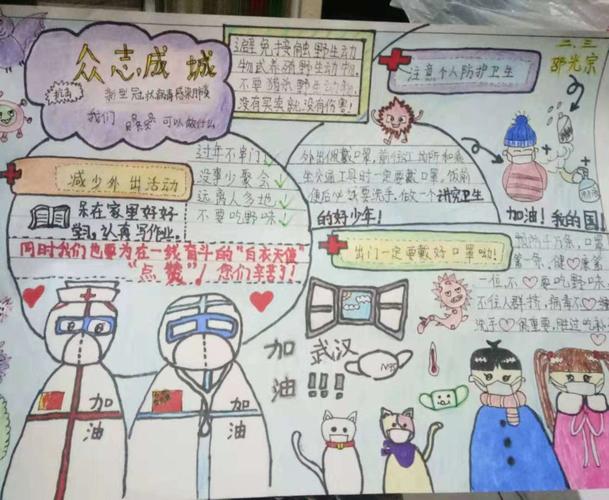 众志成城
抗击
新型冠状病毒感染肺炎
我们
可以做什么
避免接触野生动
物或养殖野生动物,
不要猎杀野生动物,
没有买卖就没有伤害!
注意个人防护卫生
二、三
邵光宗
减少外出活动
过年不串门
没事少聚会
远离人多地
不要吃野味
呆在家里好好
学习,认真写作业。
同时我们也要为在一线奋斗的“白衣天使”
“点赞”!您们辛苦了!
外出佩戴口罩,前往公共场所和乘
坐交通工具时一定要戴口罩,饭前
便后必须要洗手,做一个讲究卫生
的好少年!
加油!我的国!
出门一定要戴好口罩呦!
防护千万条,口罩
第一条,健康
一位不要吃野味
不住人群挤,病毒不
洗手很重要,胜过吃
加油
武汉
!!!
N95
加油
加油